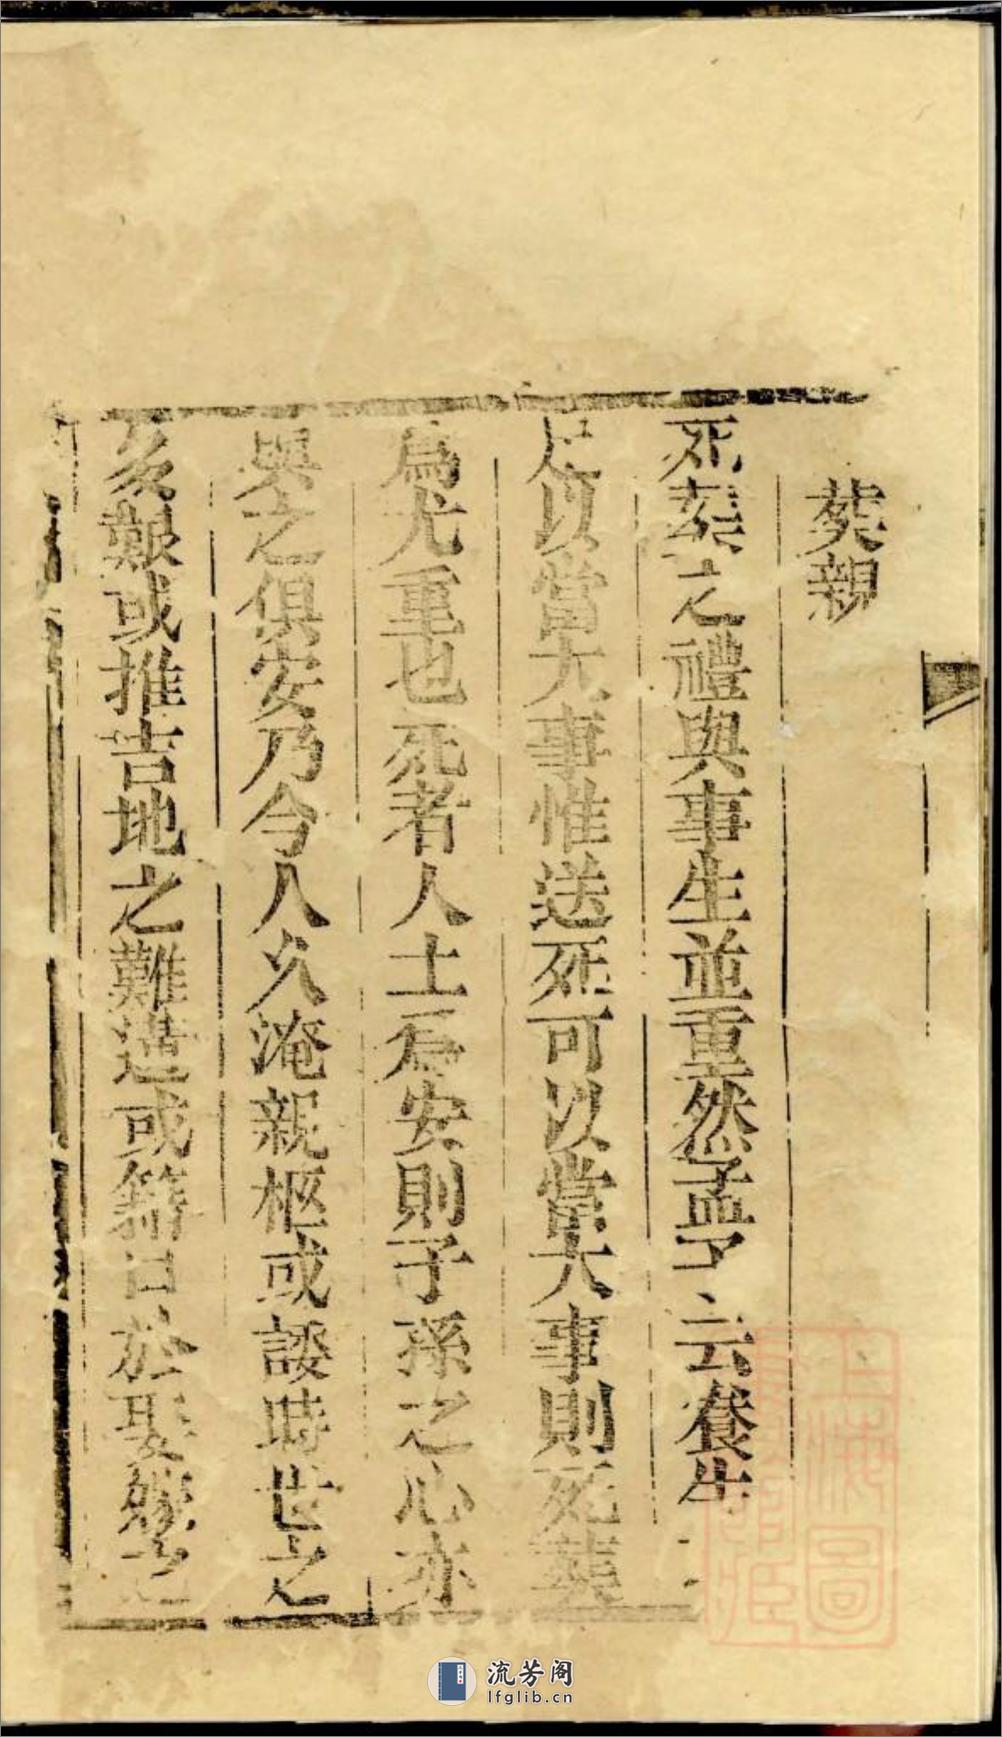 葬親
死葬之禮與事生並重然孟子云養生
足以當大事惟送死可以當大事則死葬
爲尤重也死者人土爲安則子孫之心亦
與之俱安乃今人久淹親柩或諉時世之
艱或推吉地之難遘或籍口於娶
流芳阁
lfglib.cn